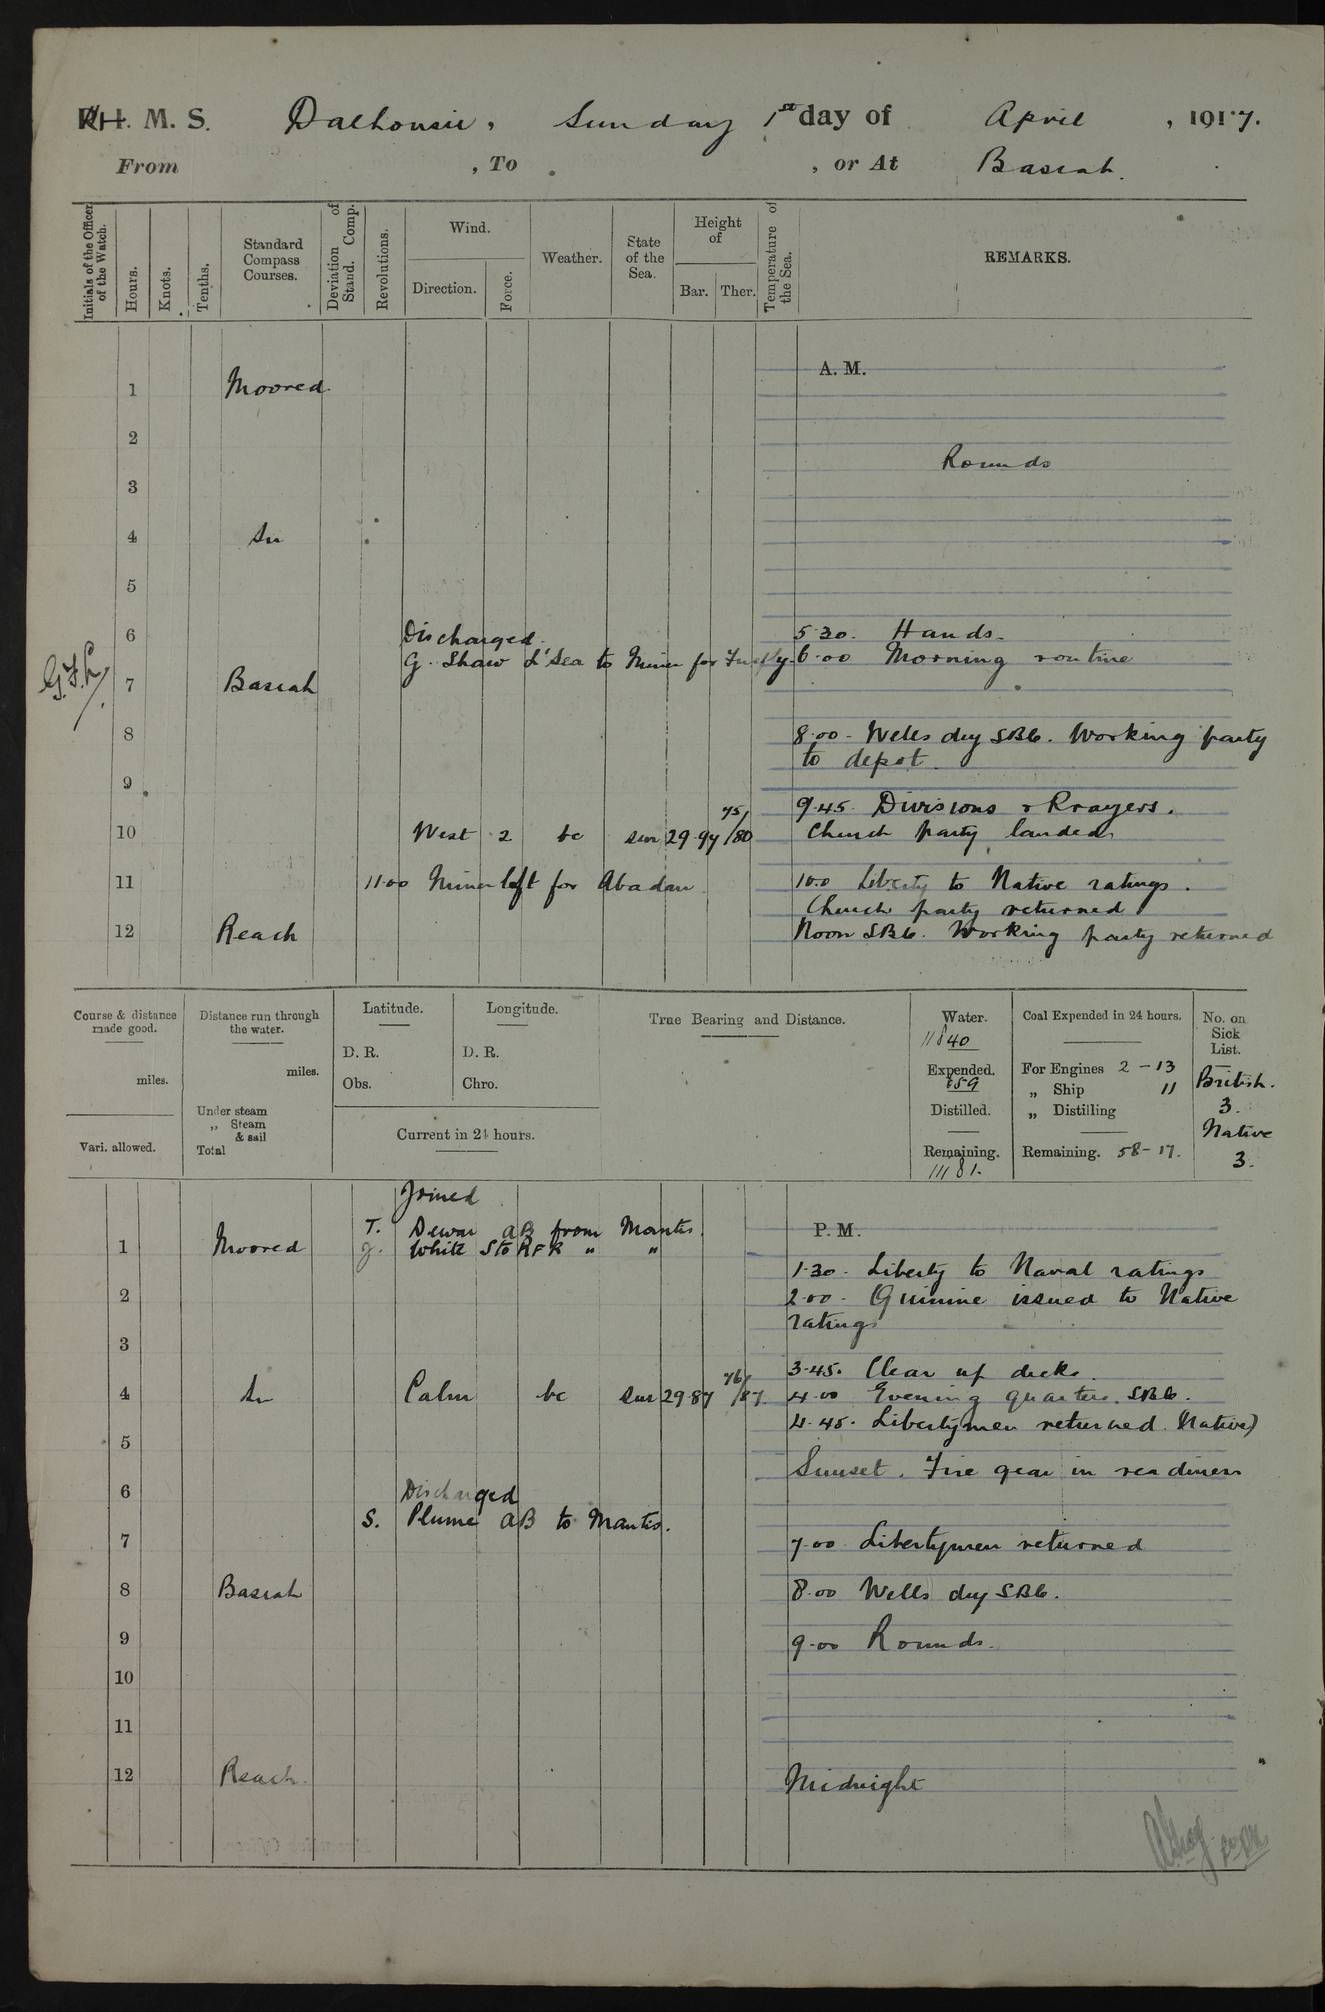 H. M. S. Dalhousie, Sunday 1st day of April, 1917.
From , To , or At Basrah.
Initials of the Officer of the Watch.
Hours.
Knots.
Tenths.
Standard Compass Courses.
Deviation of Stand. Comp.
Revolutions.
Wind.
Direction.
Force.
Weather.
State of the Sea.
Height of
Bar. Ther.
Temperature of the Sea.
REMARKS.
A. M.
1 Moored
2
Rounds
3
4 In
5
6 Discharged 5.30. Hands.
G. Shaw L'Sea to Miner for Firefly. 6.00 Morning routine
7 Basrah
8 8.00 - Wells dry SB6. Working party
to depot.
9
9.45. Divisions & Prayers.
10 West 2 bc sm 29.97 75/80 Church party landed
11 11.00 Miner left for Abadan 10.0 Liberty to Native ratings.
Church party returned
12 Reach Noon SB6. Working party returned
Course & distance made good.
miles.
Vari. allowed.
Distance run through the water.
miles.
Under steam
„ Steam & sail
Total
Latitude.
D. R.
Obs.
Longitude.
D. R.
Chro.
Current in 24 hours.
True Bearing and Distance.
Water.
11840
Expended.
659
Distilled.
Remaining.
11181.
Coal Expended in 24 hours.
For Engines 2 - 13
„ Ship 11
„ Distilling
Remaining. 58 - 17.
No. on Sick List.
British.
3.
Native
3.
Joined
T. Dewar AB from Mantis. P. M.
1 Moored J. White Sto RFR " "
1.30. Liberty to Naval ratings
2 2.00. Quinine issued to Native
ratings
3
3.45. Clear up decks.
4 In Calm bc sm 29.87 76/87. 4.00 Evening quarters. SB6.
4.45. Libertymen returned (Native)
5
Sunset. Fire gear in readiness
6 Discharged
S. Plume AB to Mantis.
7 7.00 Libertymen returned
8 Basrah 8.00 Wells dry SB6.
9 9.00 Rounds.
10
11
12 Reach. Midnight